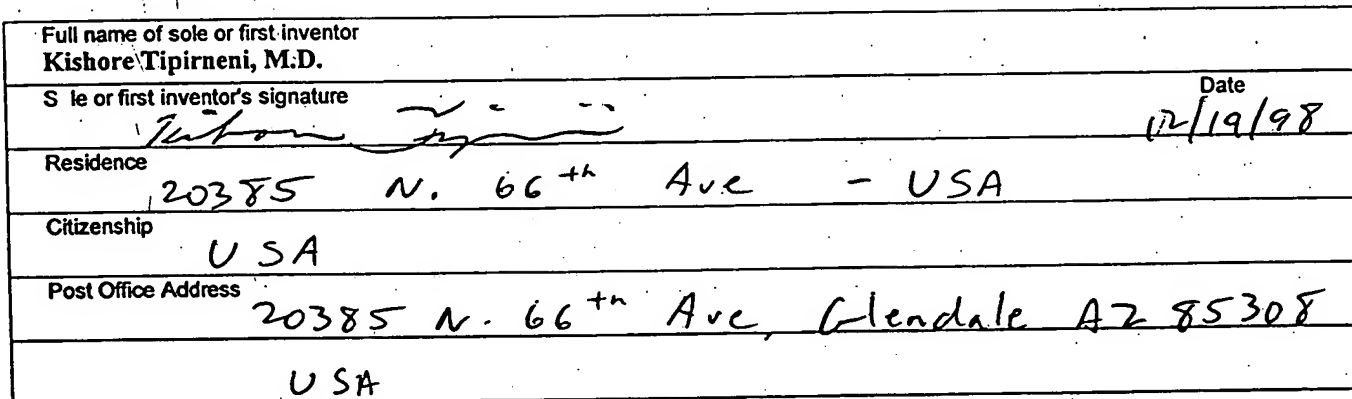 Full name of sole or first inventor
Kishore Tipirneni, M.D.
S le or first inventor's signature
Date
12/19/98
Residence
20385 N. 66th Ave - USA
Citizenship
USA
Post Office Address
20385 N. 66th Ave, Glendale AZ 85308
USA